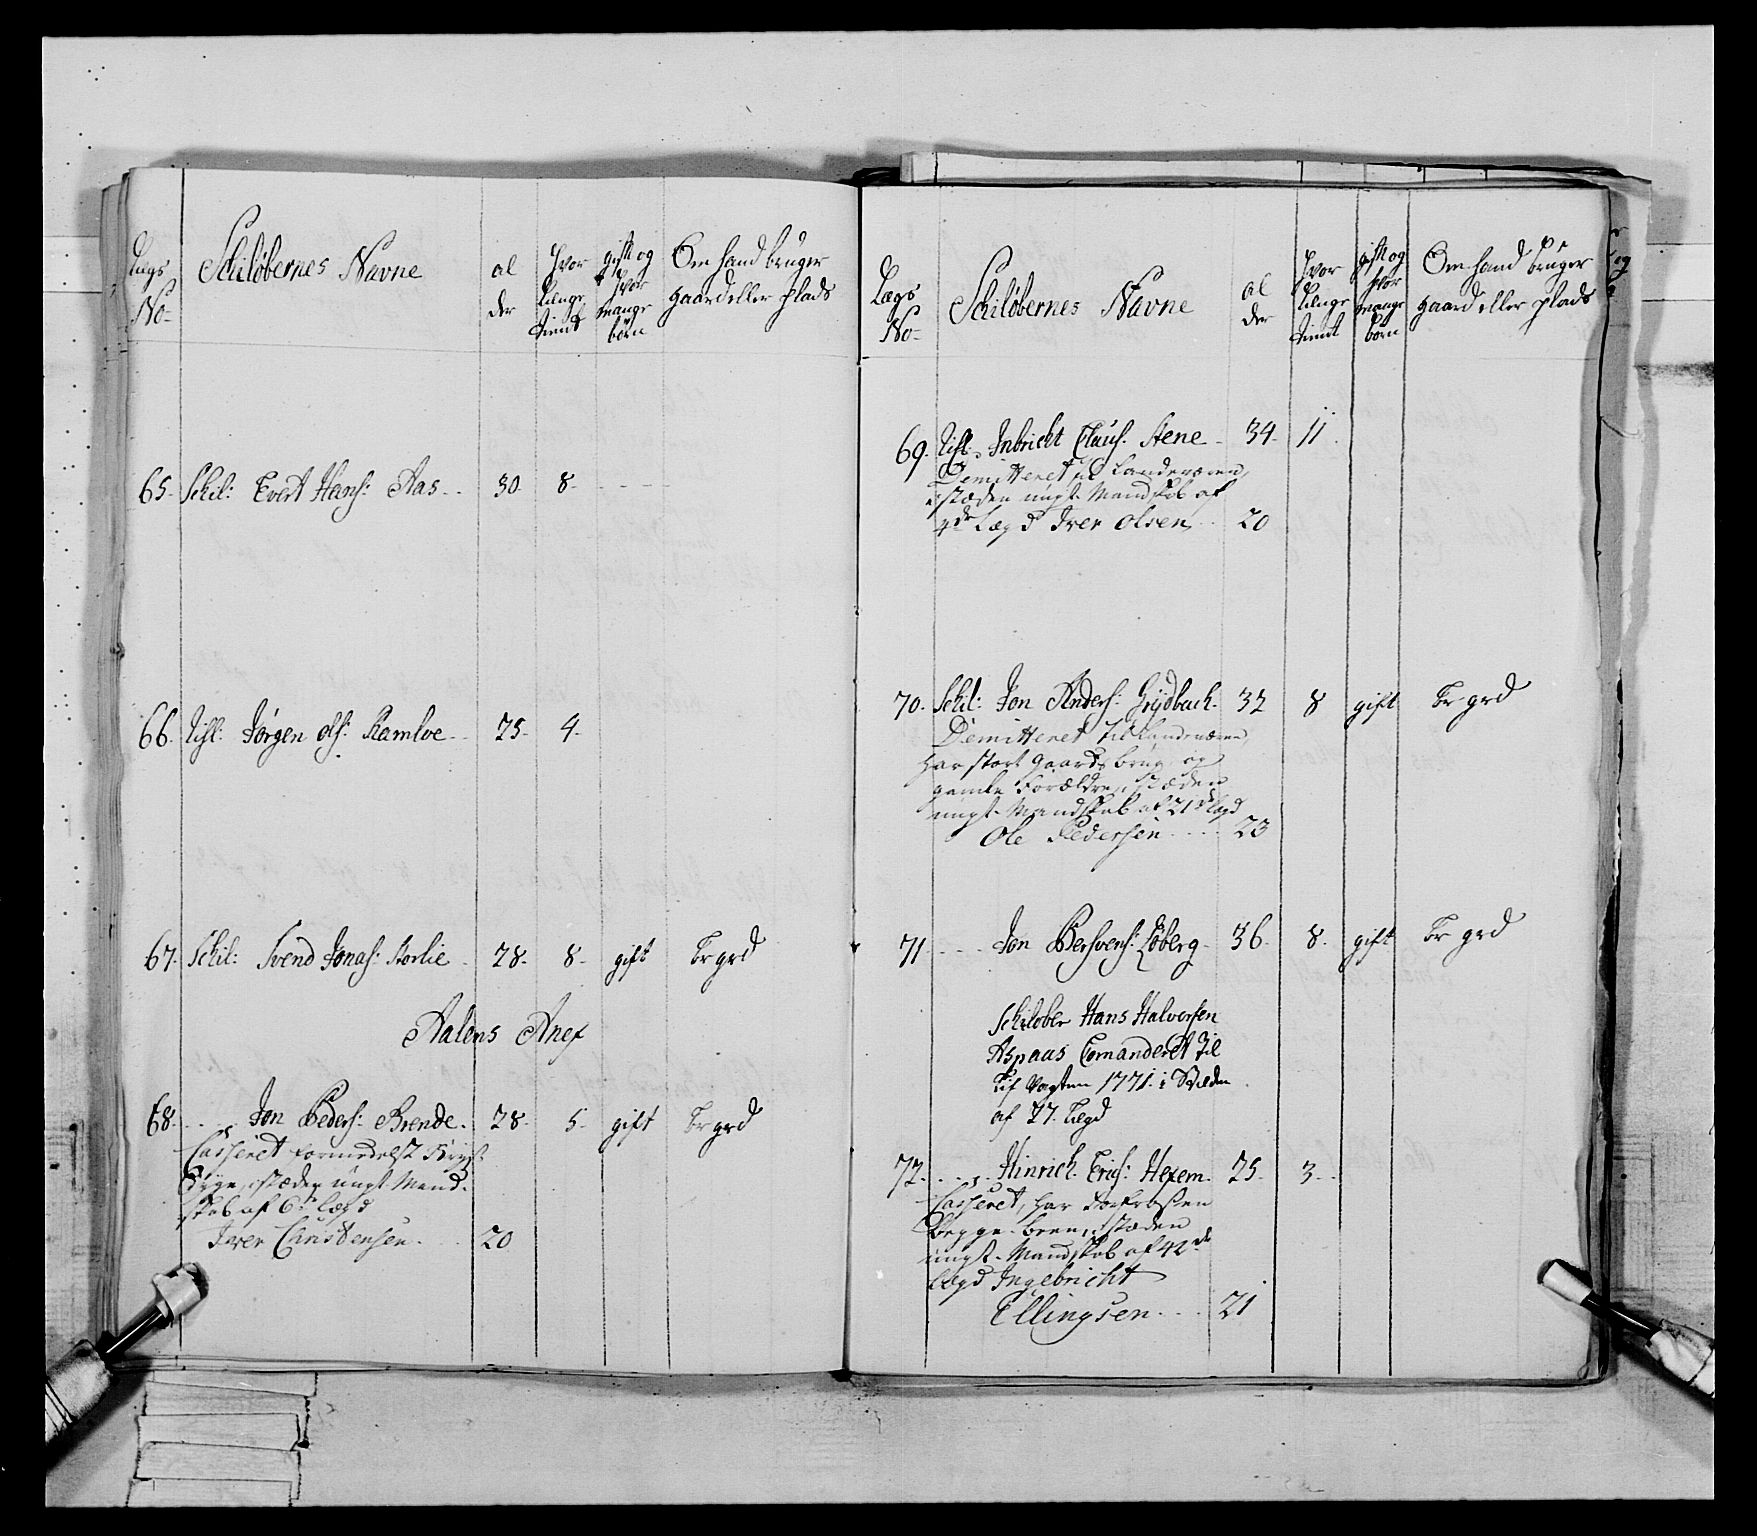 Lægs
No-
Schiløbernes Navne
al
der
hvor
længe
tient
gift og
hvor
mange
børn
Om hand bruger
gaard eller plads
65. Schil: Evert Hans: Aas.. 30. 8.
66. Jørgen ols: Ramloe.. 25. 4.
67. Schil: Svend Jonas: Korlie. 28. 8. gift br grd
Aalens Anex
68. Jon Peders: Brende. 28. 5. gift br grd
Casseret formedelst
Syge, i stæden ungt Mand.
skab af 6te lægd
Iver Christensen.. 20
Lægs
No-
Schiløbernes Navne
al
der
hvor
længe
tient
gift og
hvor
mange
børn
Om hand bruger
gaard eller plads
69. Inbricht Claus: Stene. 34. 11.
Demitteret til Landeværen,
i stæden ungt Mandskab af
4de Lægd Iver Olsen.. 20
70. Schil: Jon Anders: Grydbach. 32 8 gift br grd
Demitteret til Landeværen,
har stort gaards brug og
gamle Forældre, i stæden
ungt Mandskab af 21de lægd
Ole Pedersen.... 23
71... Jon Bersvens: Løberg. 36. 8. gift br grd
Schiløber Hans Halvorsen
Aspaas Comanderet til
Lif Vagten 1771. i Stæden
af 77. Lægd
72.... Hinrich Erics: Hexem. 25. 3..
Casseret, har
begge been, i stæden
ungt Mandskab af 42de
Lægd Ingebricht
Ellingsen... 21